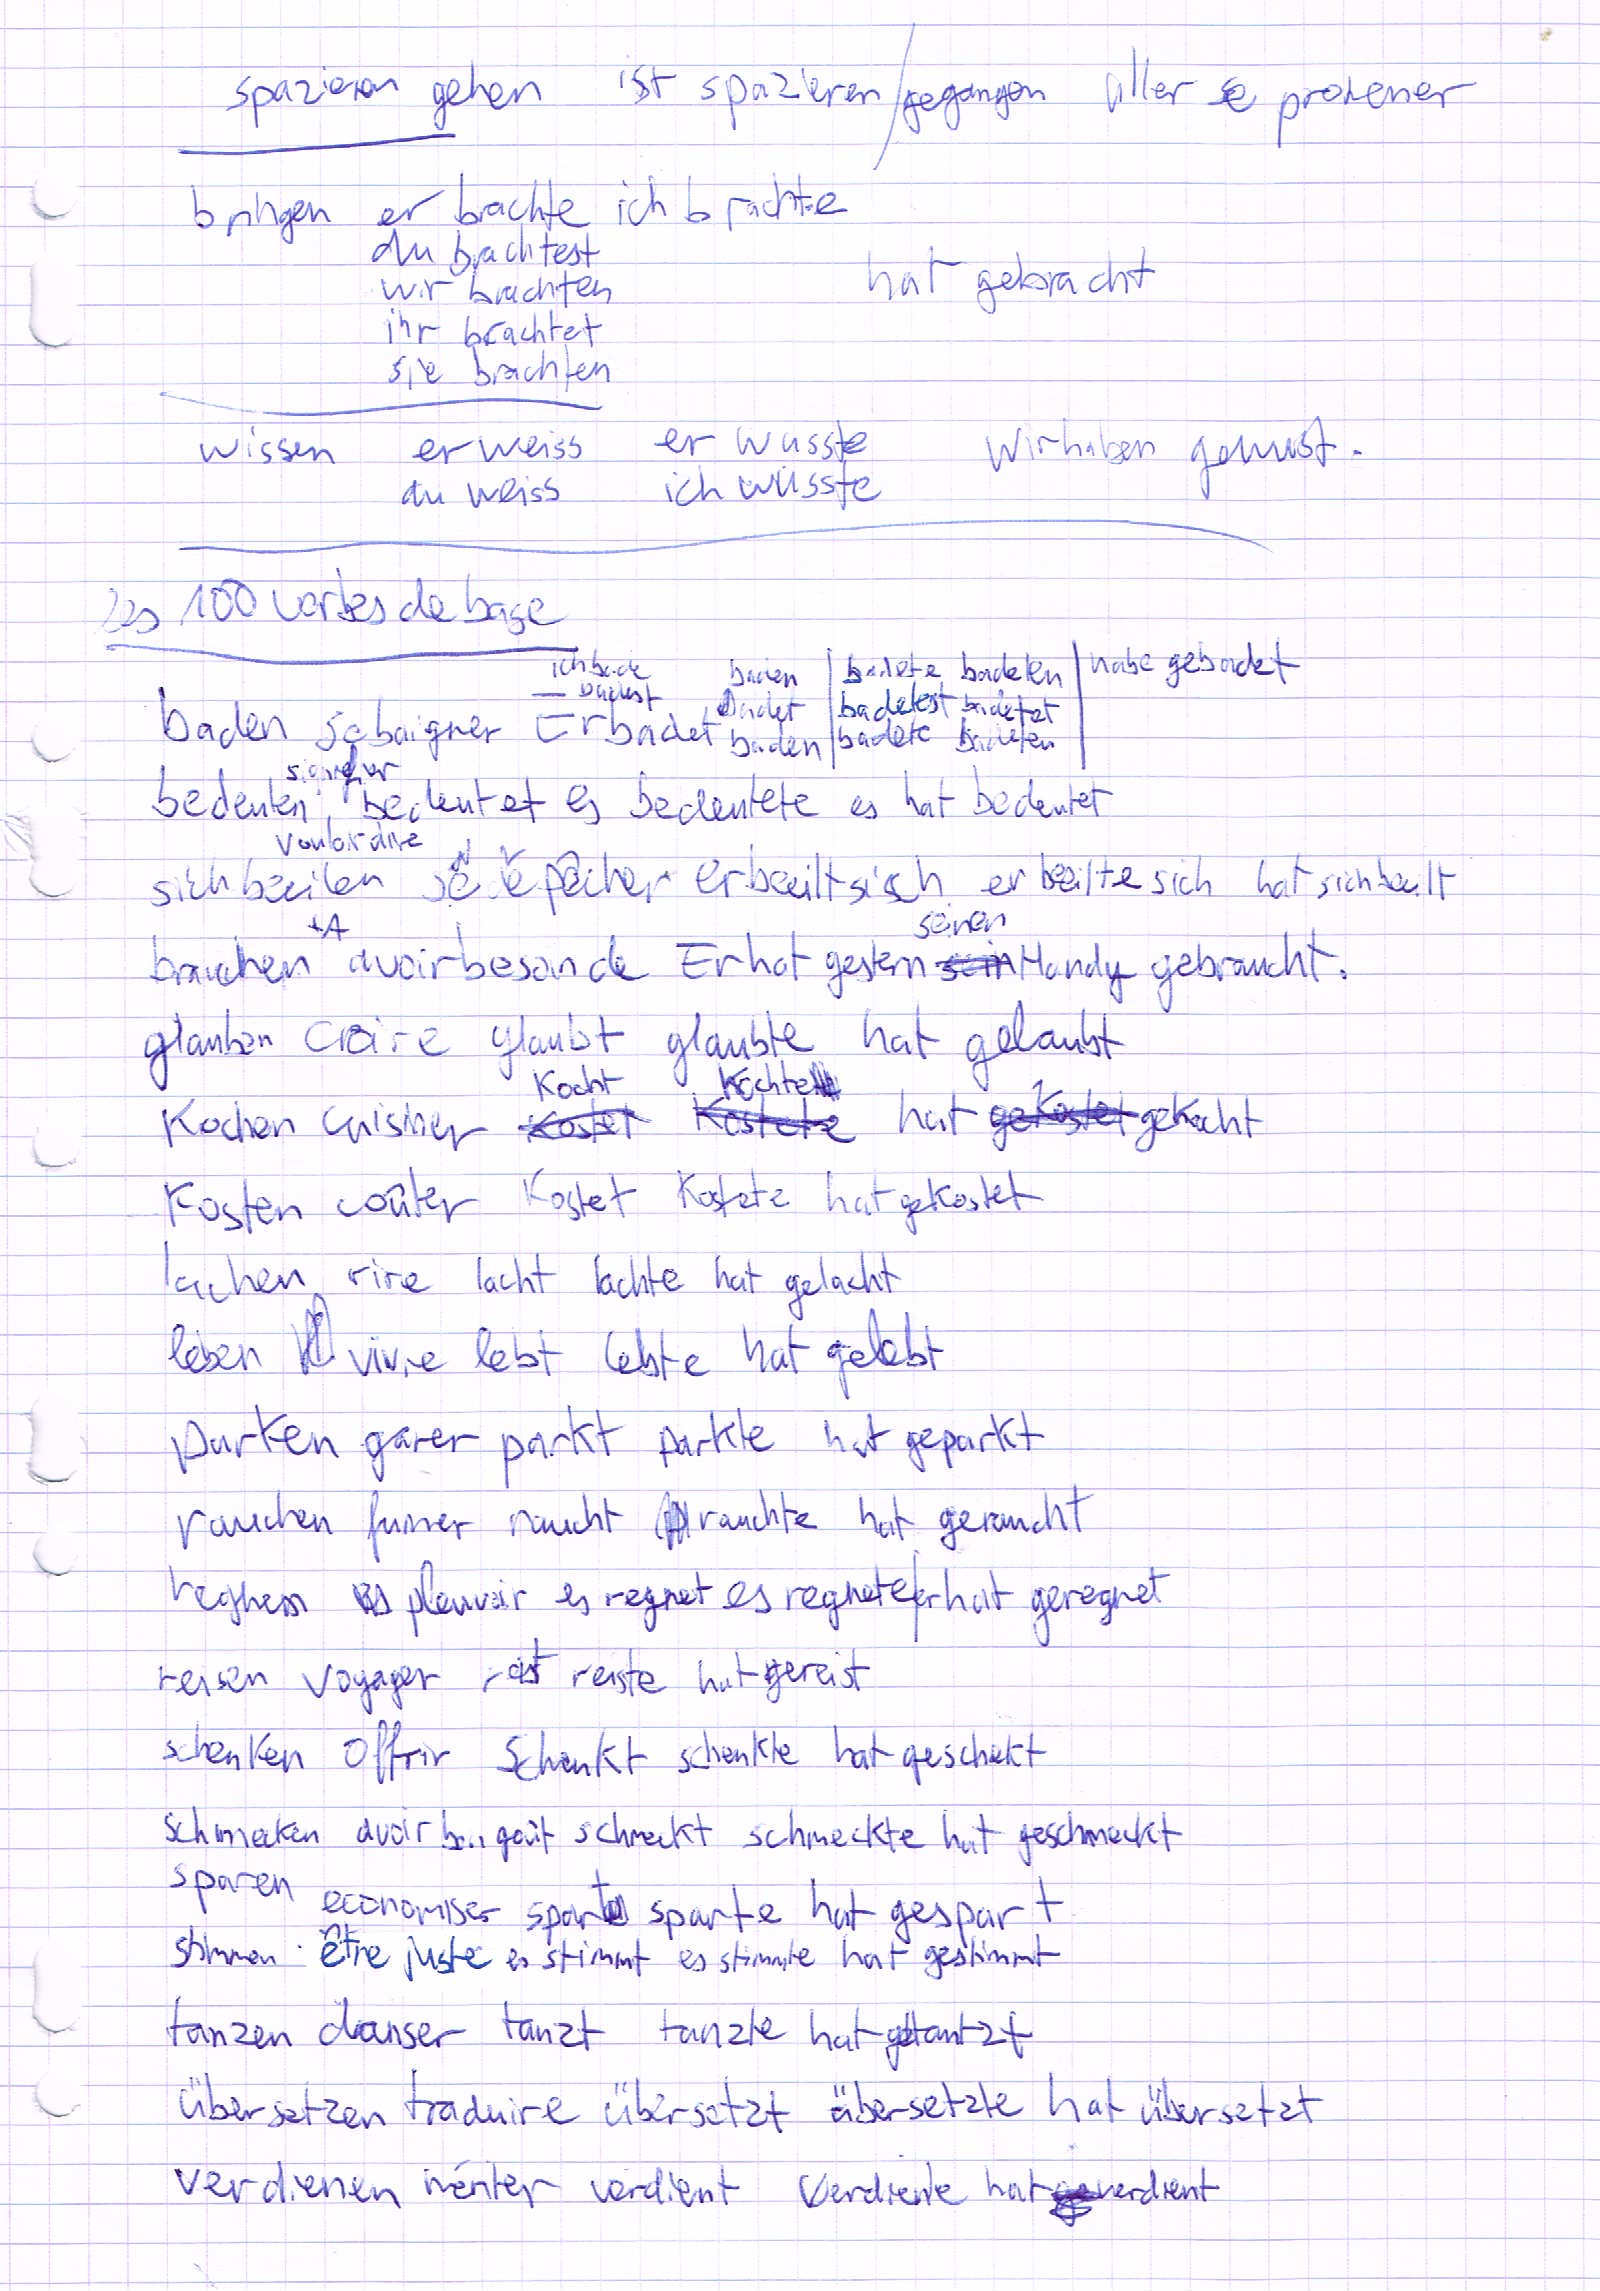 spazieren gehen ist spazieren / gegangen aller se promener
bringen er brachte ich brachte
du brachtest
wir brachten
hat gebracht
ihr brachtet
sie brachten
wissen er weiss er wusste Wir haben gewusst.
du weiss ich wüsste
Les 100 verbes de base
ich bade baden badete badeten habe gebadet
— badest badet badetest badetet
baden se baigner Er badet baden badete badeten
signifier
bedeuten, bedeutet es bedeutete es hat bedeutet
vouloir dire
sich beeilen se dépêcher er beeilt sich er beeilte sich hat sich beeilt
+A seinen
brauchen avoir besoin de Er hat gestern sein Handy gebraucht.
glauben croire glaubt glaubte hat gelaubt
kocht kochte
kochen cuisiner kostet kostete hat gekostet gekocht
Kosten coûter kostet kostete hat gekostet
lachen rire lacht lachte hat gelacht
leben vivre lebt lebte hat gelebt
parken garer parkt parkte hat geparkt
rauchen fumer raucht rauchte hat geraucht
pleuvoir es regnet es regnete er hat geregnet
reisen voyager reist reiste hat gereist
schenken offrir schenkt schenkte hat geschekt
schmecken avoir bon goût schmeckt schmeckte hat geschmeckt
sparen economiser spart sparte hat gespart
stimmen être juste es stimmt es stimmte hat gestimmt
tanzen danser tanzt tanzte hat getantzt
übersetzen traduire übersetzt übersetzte hat übersetzt
verdienen mériter verdient verdiente hat verdient